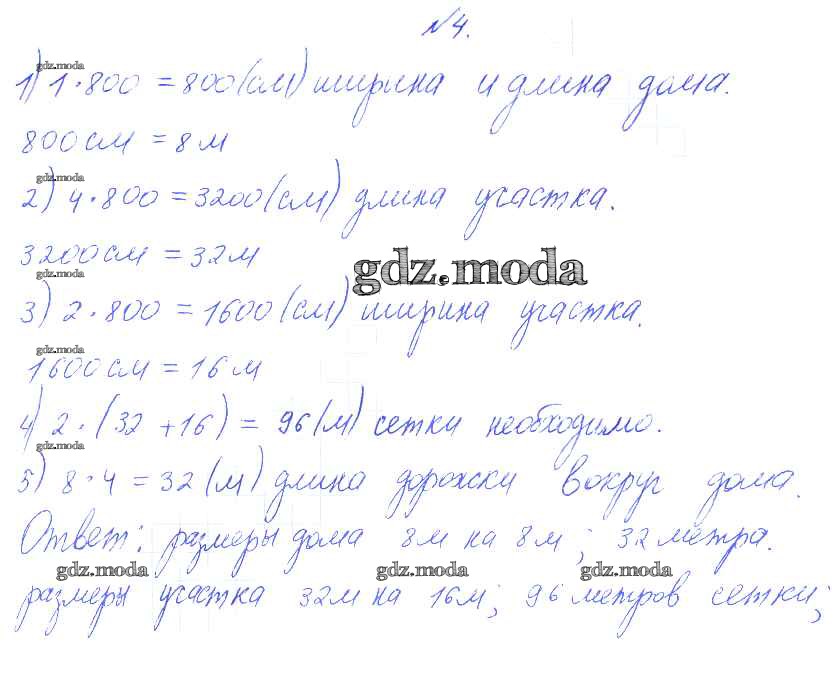 №4.
gdz.moda
1) 1·800 = 800(см) ширина и длина дома.
800 см = 8 м
gdz.moda
2) 4·800 = 3200(см) длина участка.
3200 см = 32 м
gdz.moda
gdz.moda
3) 2·800 = 1600(см) ширина участка.
gdz.moda
1600 см = 16 м
4) 2·(32 + 16) = 96(м) сетки необходимо.
gdz.moda
5) 8·4 = 32(м) длина дорожки вокруг дома.
Ответ: размеры дома 8м на 8м; 32 метра.
gdz.moda gdz.moda gdz.moda
размеры участка 32м на 16м; 96 метров сетки;